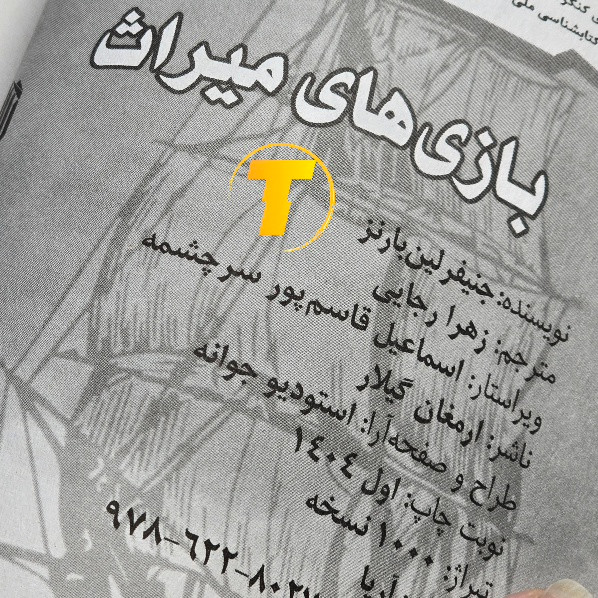 کتابشناسی ملی
بازی‌های میراث
T
نویسنده: جنیفر لین بارنز
مترجم: زهرا رجایی
ویراستار: اسماعیل قاسم‌پور سرچشمه
ناشر: ارمغان گیلار
طراح و صفحه‌آرا: استودیو جوانه
نوبت چاپ: اول ۱۴۰۴
تیراژ: ۱۰۰۰ نسخه
آریا
۹۷۸-۶۲۲-۸۰۲۷